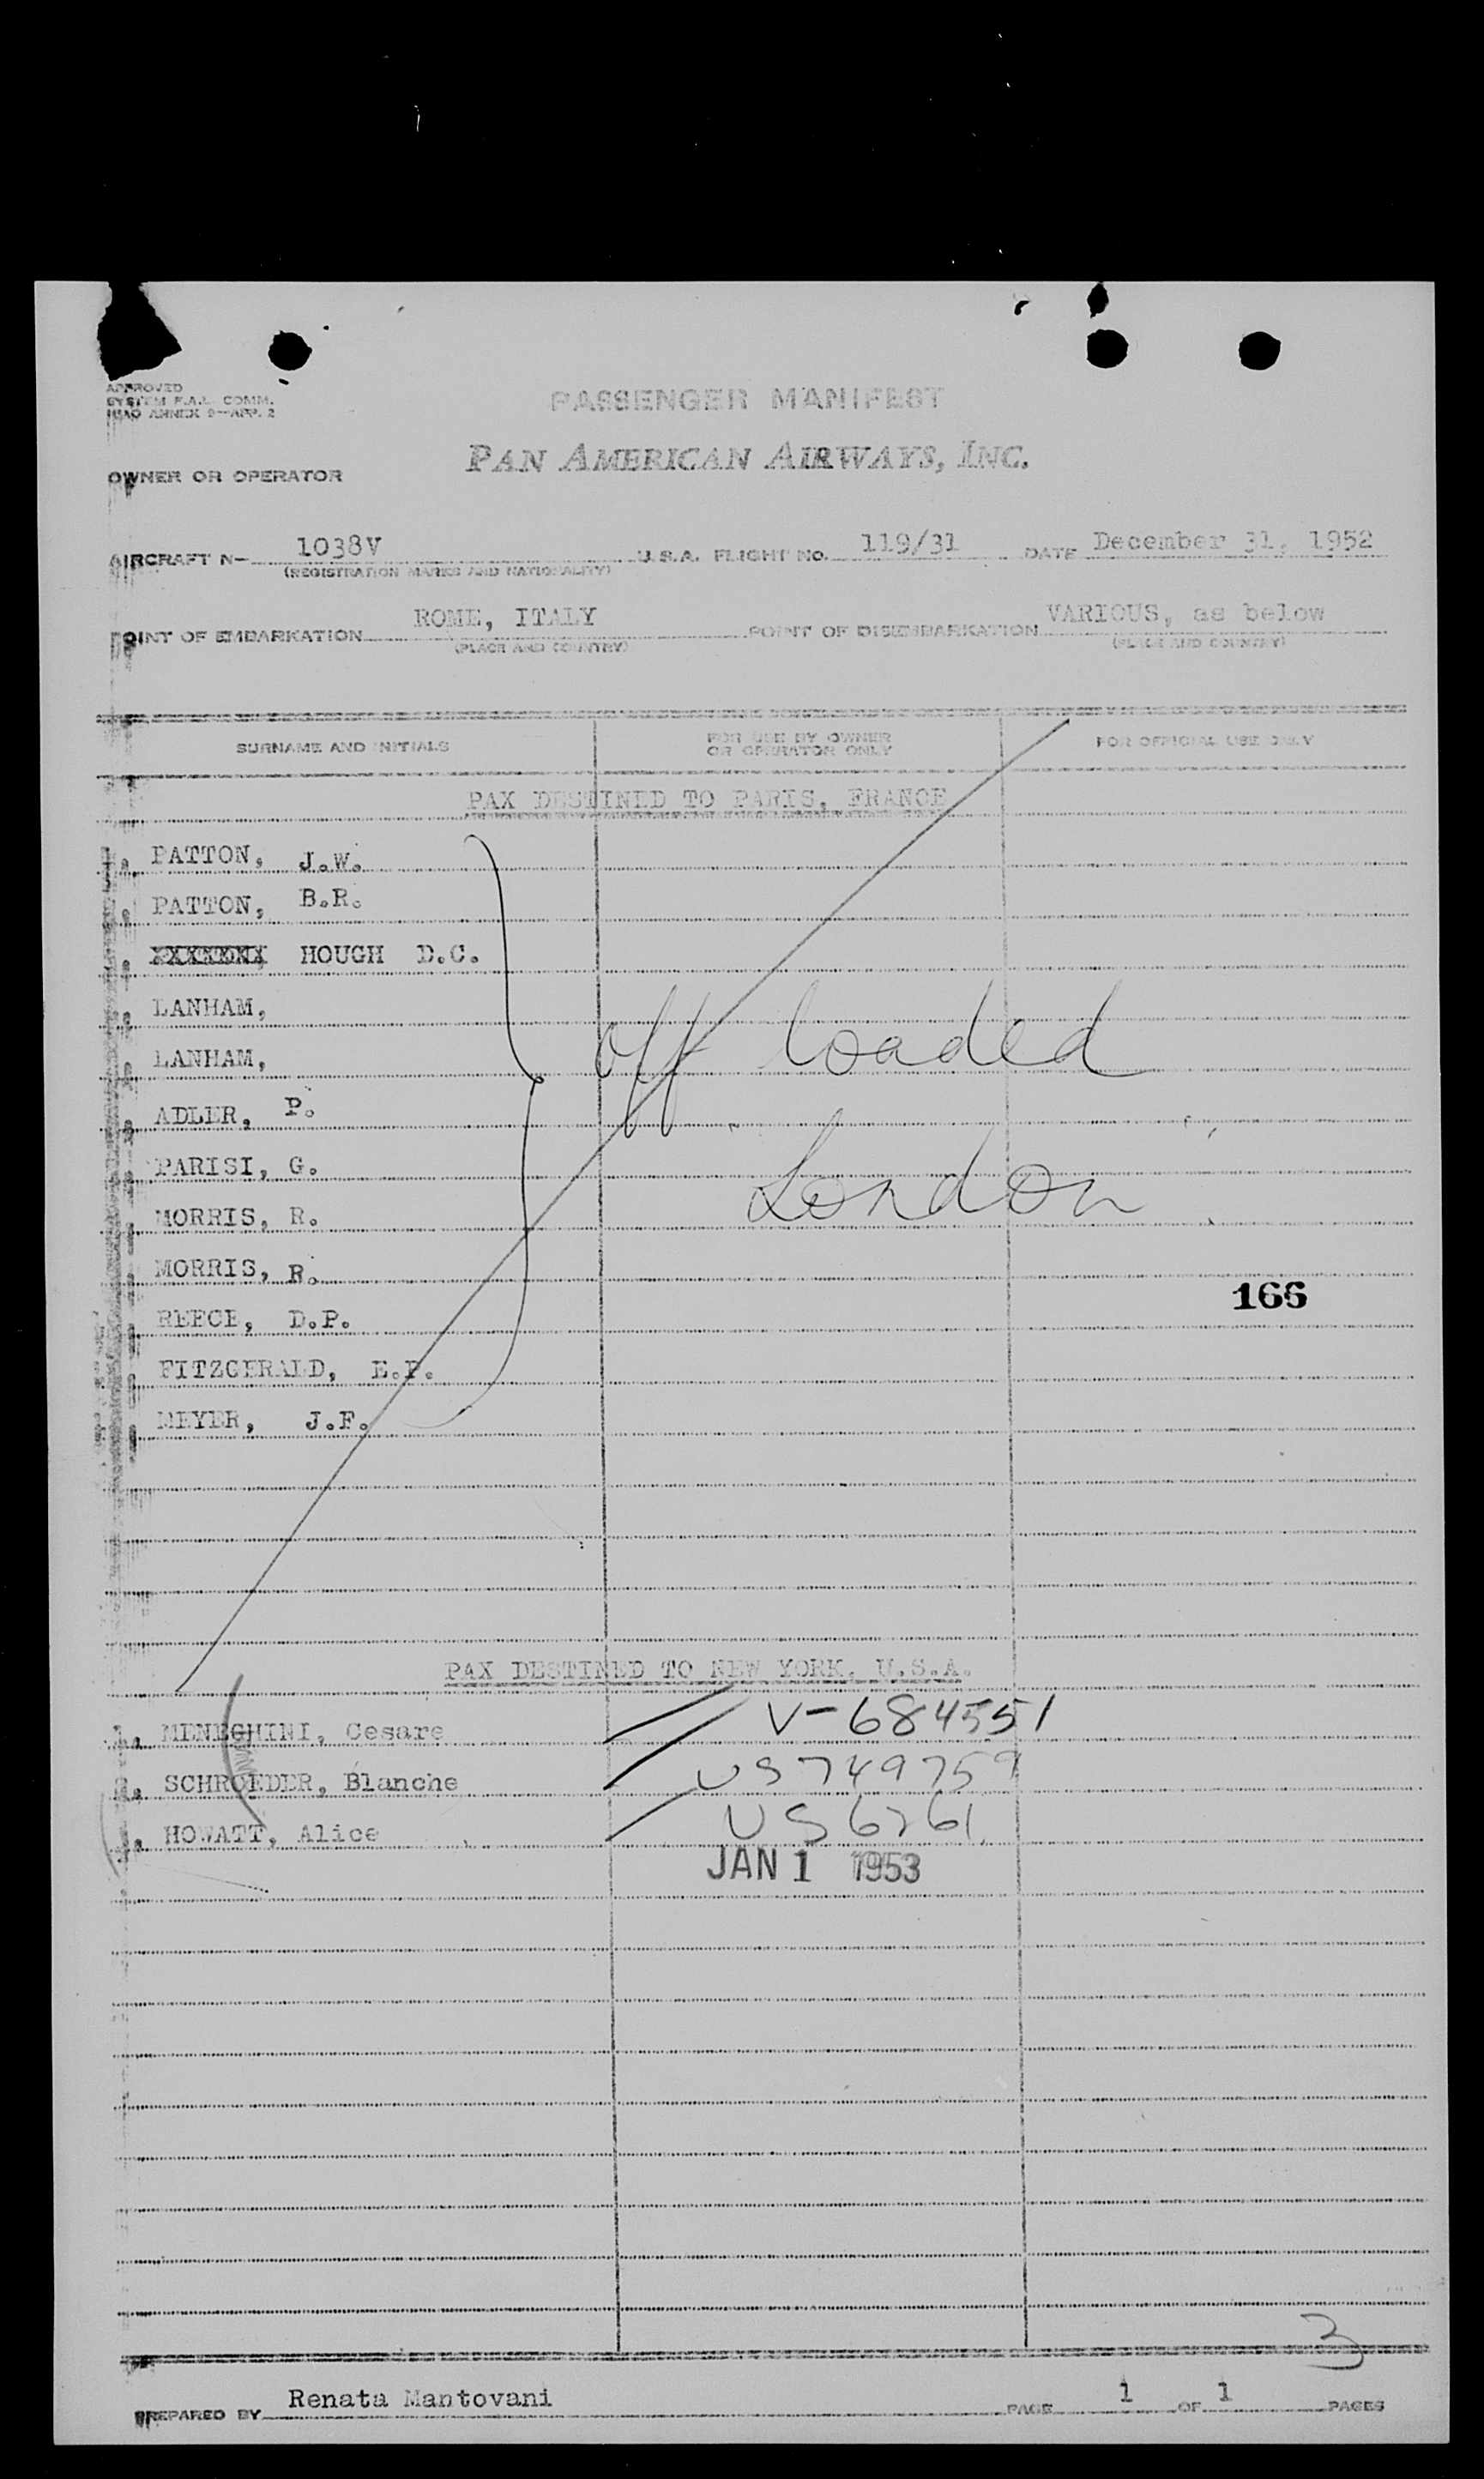 APPROVED
SYSTEM F.A.L. COMM.
ICAO ANNEX 9—APP. 2
PASSENGER MANIFEST
OWNER OR OPERATOR PAN AMERICAN AIRWAYS, INC.
AIRCRAFT N— 1038V U.S.A. FLIGHT NO. 119/31 DATE December 31, 1952
(REGISTRATION MARKS AND NATIONALITY)
POINT OF EMBARKATION ROME, ITALY POINT OF DISEMBARKATION VARIOUS, as below
(PLACE AND COUNTRY) (PLACE AND COUNTRY)
SURNAME AND INITIALS FOR USE BY OWNER OR OPERATOR ONLY FOR OFFICIAL USE ONLY
PAX DESTINED TO PARIS, FRANCE
1. PATTON, J.W.
PATTON, B.R.
HOUGH D.C.
LANHAM,
LANHAM, off loaded
ADLER, P.
PARISI, G.
MORRIS, R. London
MORRIS, R.
166
REECE, D.P.
FITZGERALD, E.P.
MEYER, J.F.
PAX DESTINED TO NEW YORK, U.S.A.
1. MENEGHINI, Cesare V-684551
2. SCHROEDER, Blanche US 749759
3. HOWATT, Alice US 6761
JAN 1 1953
3
PREPARED BY Renata Mantovani PAGE 1 OF 1 PAGES